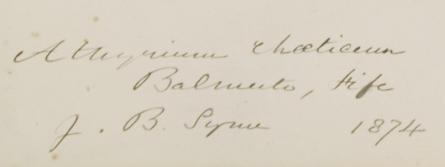 Athyrium rhaeticum
Balmuto, Fife
J. B. Syme 1874